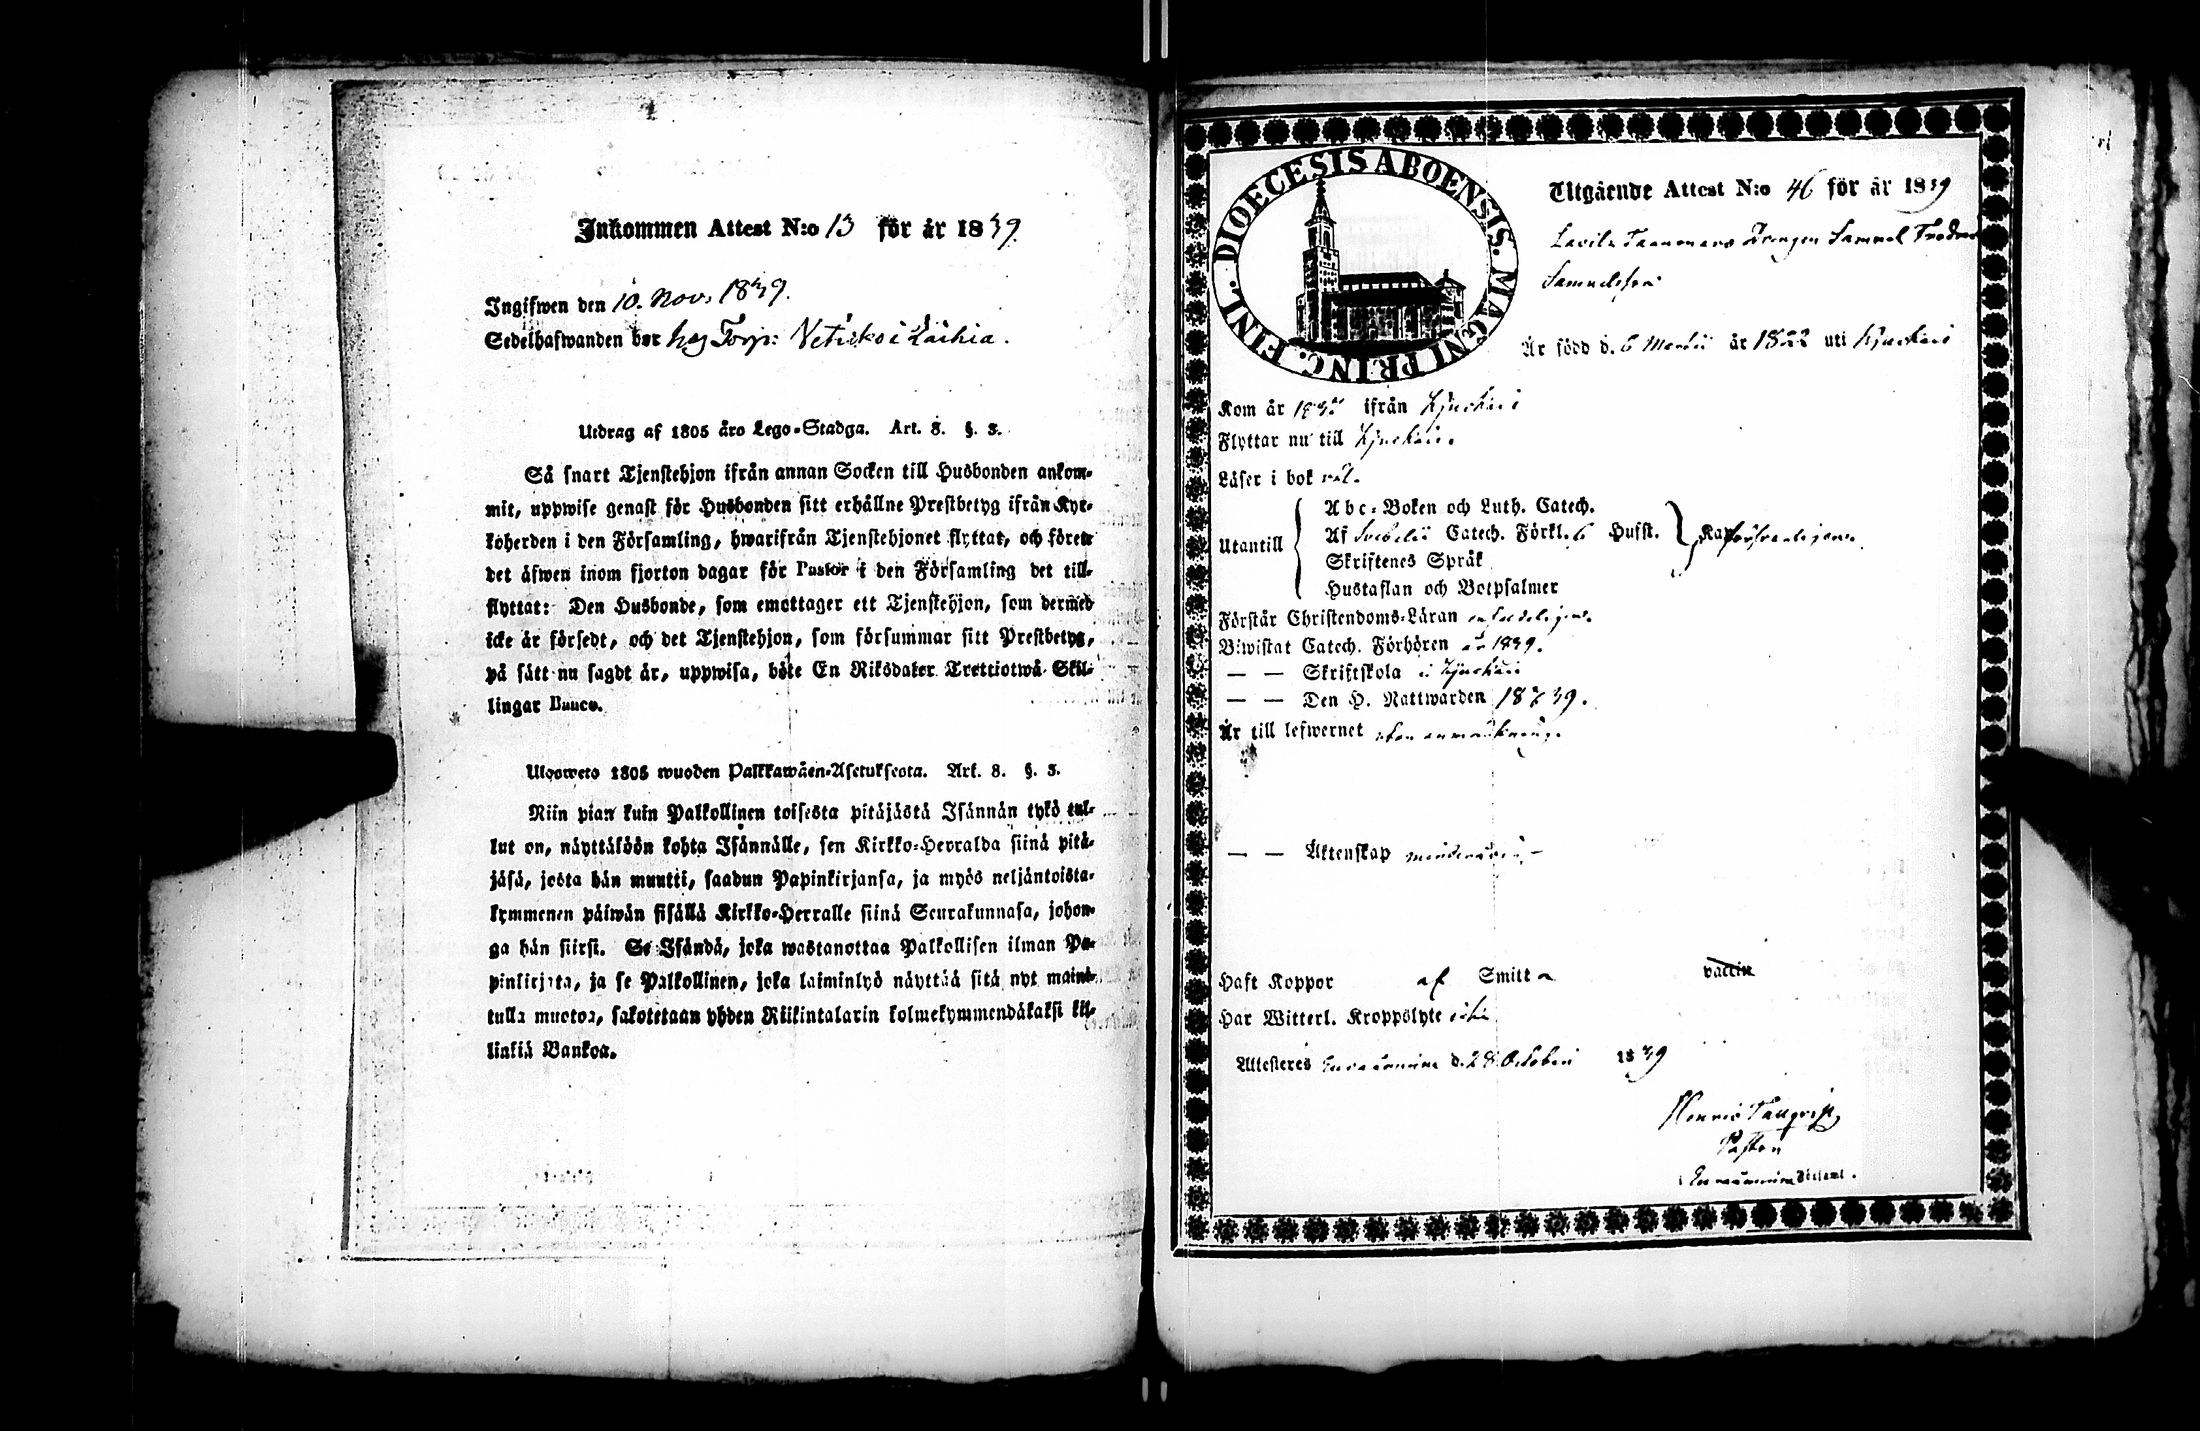 Inkommen Attest N:o 13 för år 1839.
Ingifwen den 10. Nov. 1839.
Sedelhafwanden bor hos Torp: i
Utdrag af 1805 års Lego-Stadga. Art. 8. §. 3.
Så snart Tjenstehjon ifrån annan Socken till Husbonden ankom-
mit, uppwise genast för Husbonden sitt erhållne Prestbetyg ifrån Kyr-
koherden i den Församling, hwarifrån Tjenstehjonet flyttat, och förete
det äfwen inom fjorton dagar för Pastor i den Församling det till-
flyttat: Den Husbonde, som emottager ett Tjenstehjon, som dermed
icke är försedt, och det Tjenstehjon, som försummar sitt Prestbetyg,
på sätt nu sagdt är, uppwisa, böte En Riksdaler Trettiotwå Skil-
lingar Banco.
Ulosweto 1805 wuoden Palkkawäen-Asetuksesta. Art. 8. §. 3.
Niin pian kuin Palkollinen toisesta pitäjästä Isännän tykö tul-
lut on, näyttäköön kohta Isännälle, sen Kirkko-Herralda siinä pitä-
jäsä, josta hän muutti, saadun Papinkirjansa, ja myös neljäntoista-
kymmenen päiwän sisällä Kirkko-Herralle siinä Seurakunnasa, johon-
ga hän siirsi. Se Isändä, joka wastanottaa Palkollisen ilman Pa-
pinkirjata, ja se Palkollinen, joka laiminlyö näyttää sitä nyt maini-
tulla muotoa, sakotetaan yhden Riikintalarin kolmekymmendäkaksi kil-
linkiä Bankoa.
DIOECESIS ABOENSIS. MAGNI PRINC. FINL.
Utgående Attest N:o 46 för år 1839
Drengen Samuel
Samuelsson
Är född d. 6 Martii år 1822 uti Kjuckais
Kom år ifrån Kjuckais
Flyttar nu till Kjuckais.
Läser i bok väl.
Utantill
Abc-Boken och Luth. Catech.
Af Svebelii Catech. Förkl. 6 Hufst.
Skriftenes Språk
Hustaflan och Botpsalmer
Försvarligen.
Förstår Christendoms-Läran
Biwistat Catech. Förhören år 1839.
— — Skriftskola i Kjuckais
— — Den H. Nattwarden 39.
Är till lefwernet utan anmärkning.
— — Äktenskap minderårig.
Haft Koppor af Smitta vaccin
Har Witterl. Kroppslyte icke
Attesteres Euraåminne d. 28 October 1839
Henric
Pastor
i Euraåminne Församl.